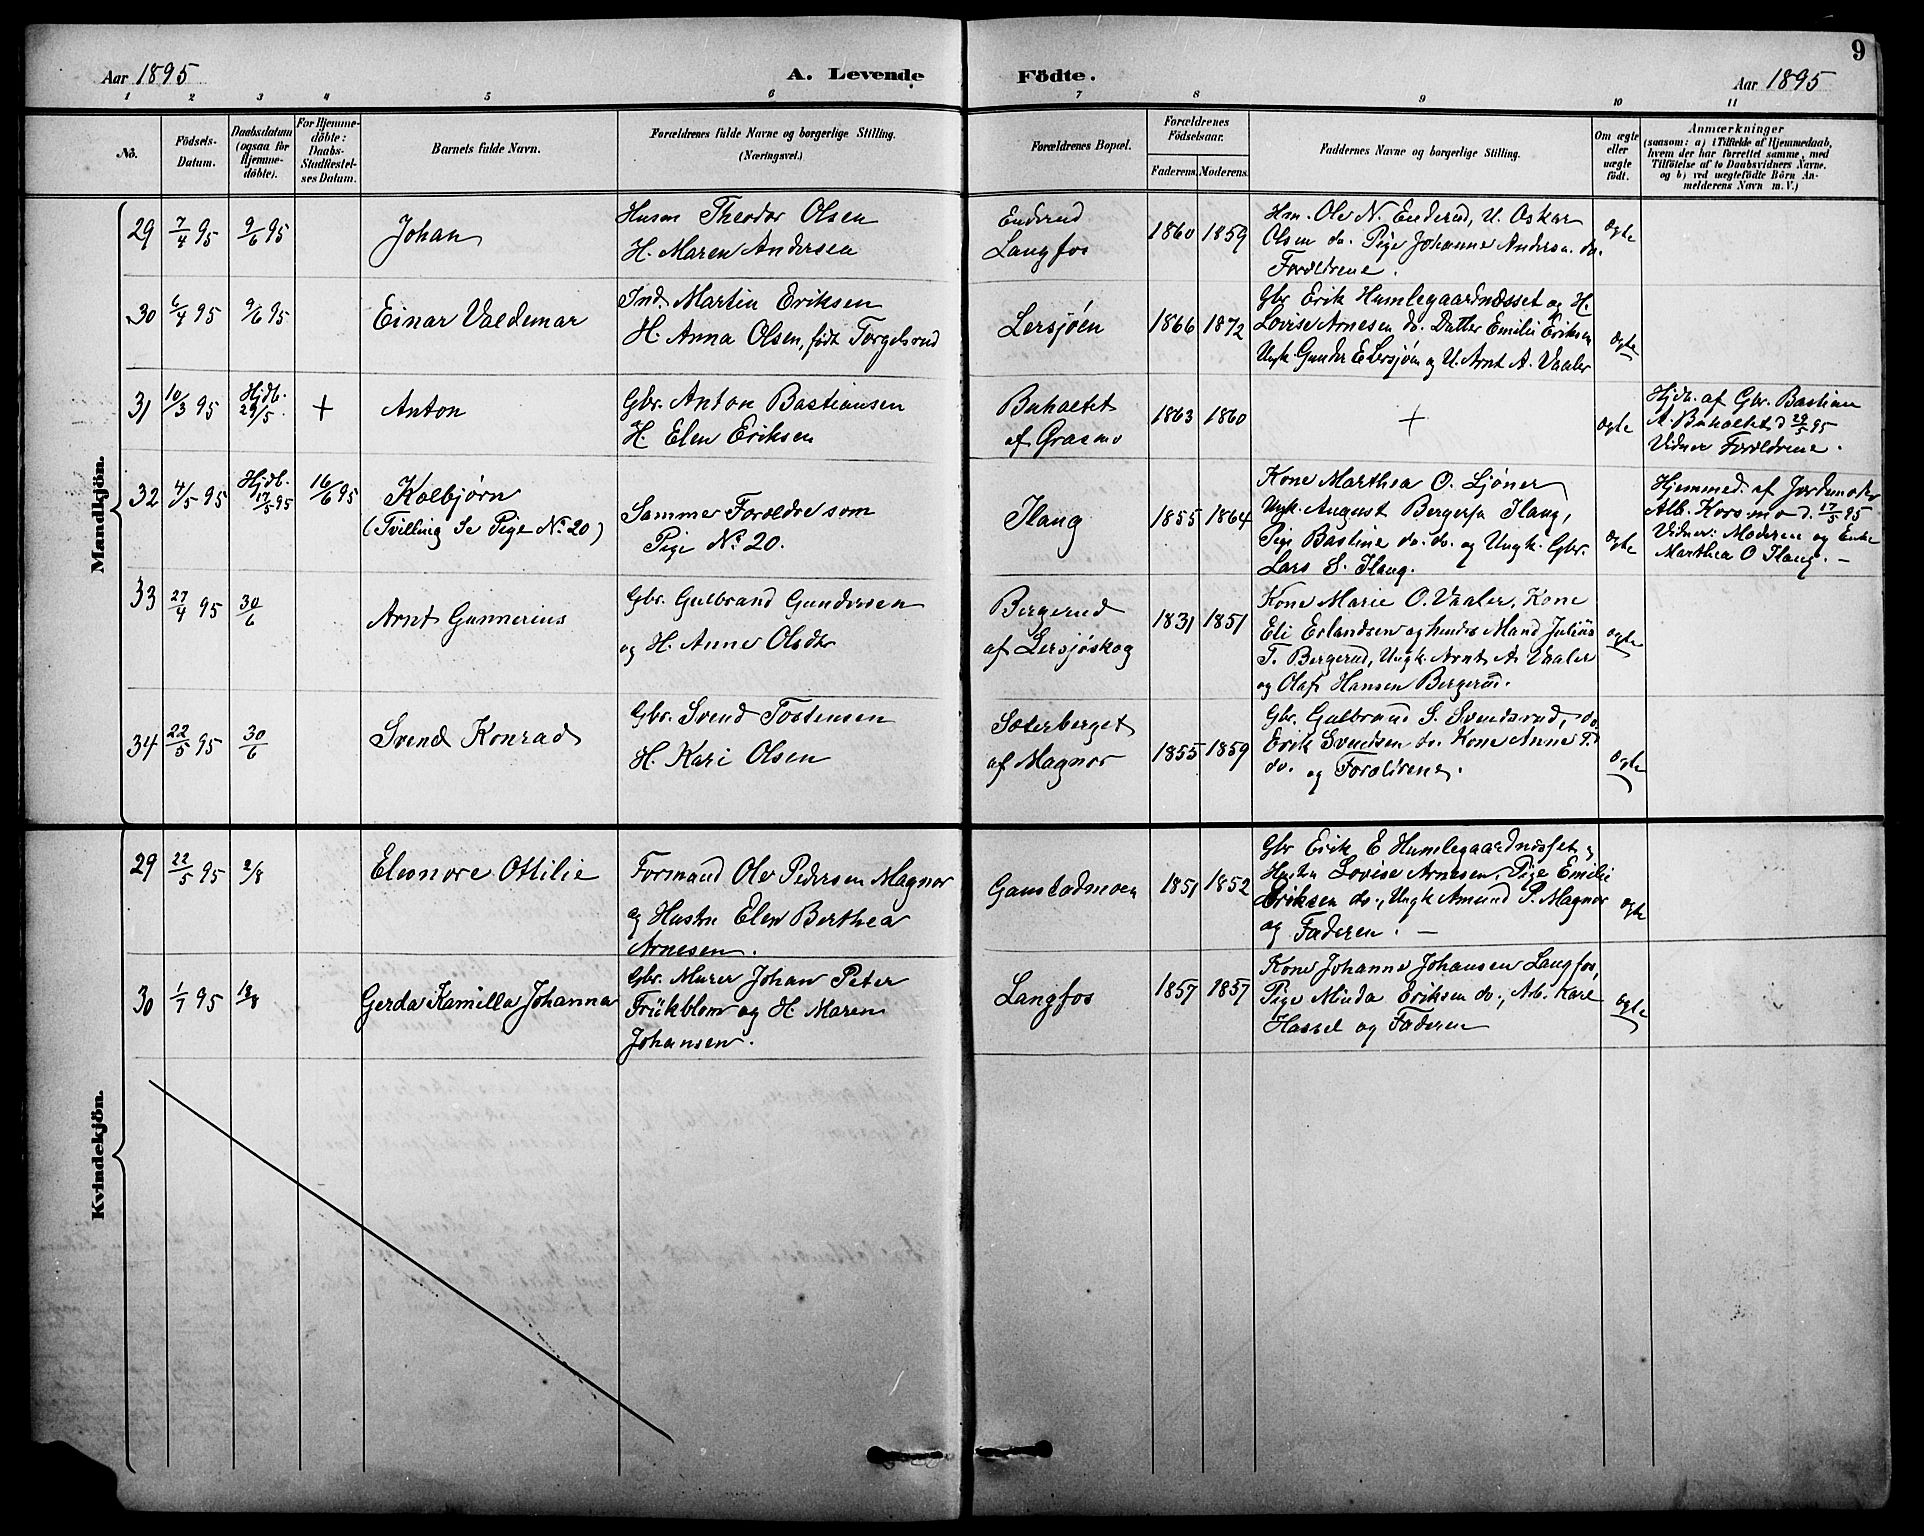 Aar 1895
A. Levende
Födte.
Aar 1895
9
1 2 3 4 5 6 7 8 9 10 11
No.
Födsels-Datum.
Daabsdatum (ogsaa for Hjemme-döbte).
For Hjemme-döbte: Daabs-Stadfæstel-ses Datum.
Barnets fulde Navn.
Forældrenes fulde Navne og borgerlige Stilling.
(Næringsvei.)
Forældrenes Bopæl.
Forældrenes Födselsaar.
Faderens. Moderens.
Faddernes Navne og borgerlige Stilling.
Om ægte eller uægte födt.
Anmærkninger
(saasom: a) i Tilfælde af Hjemmedaab,
hvem der har forrettet samme, med
Tilföielse af to Daabsvidners Navne.
og b) ved uægtefödte Börn An-
melderens Navn m. V.)
Mandkjön.
29 7/4 95 9/6 95
Johan
Husm Theodor Olsen
H. Maren Andersen
Enderud
Langfos
1860 1859
Hm. Ole N. Enderud, U. Oskar
Olsen do. Pige Johanne Andersn. do.
Forældrene.
ægte
30 6/4 95 9/6 95
Einar Valdemar
Ind. Martin Eriksen
H. Anna Olsen, født Torgelsrud
Lersjøen
1866 1872
Gbr Erik Humlegaardnæsset og H.
Lovise Arnesen do. Datter Emilie Eriksen
Ungk. Gunder E Lersjøen og U. Arnt A. Vaaler
ægte
31 10/3 95 Hjdb. 29/5. +
Anton
Gbr. Anton Bastiansen
H. Elen Eriksen
Buholtet
af Grasmo
1863 1860
+
ægte
Hjdb. af Gbr. Bastian
A. Buholtet d 29/5 95
Vidner Forældrene.
32 4/5 95 Hjdb. 17/5 95 16/6 95
Kolbjørn
(Tvilling Se Pige No. 20)
Samme Forældre som
Pige No. 20.
Ilang
1855 1864
Kone Marthea O. Sjøner,
Ungk. August Bergersn Ilang,
Pige Bastine do. do. og Ungk. Gbr.
Lars S. Ilang.
ægte
Hjemmed. af Jordemoder
Alb. Korsmo d. 17/5 95
Vidner: Moderen og Enke
Marthea O Ilang. –
33 27/4 95 30/6
Arnt Gunnerius
Gbr. Gulbrand Gundersen
og H. Anne Olsdtr
Bergerud
af Lersjøskog
1831 1851
Kone Marie O. Vaaler, Kone
Eli Erlandsen og hendes Mand Julius
T. Bergerud, Ungk. Arnt A. Vaaler
og Olaf Hansen Bergerud.
ægte
34 22/5 95 30/6
Svend Konrad
Gbr. Svend Tostensen
H. Kari Olsen
Sæterberget
af Magnor
1855 1859
Gbr. Gulbrand S. Svendsrud, do
Erik Svendsen do. Kone Anne T.
do. og Forældrene.
ægte
Kvindekjön.
29 22/5 95 2/8
Eleonore Ottilie
Formand Ole Pedersen Magnor
og Hustru Elen Berthea
Arnesen.
Gaustadmoen
1851 1852
Gbr Erik E Humlegaardnæsset,
Hustru Lovise Arnesen, Pige Emilie
Eriksen do., Ungk Amund P. Magnor
og Faderen. –
ægte
30 1/7 95 18/8
Gerda Kamilla Johanna
Gbr. Murer Johan Peter
Frükblom og H. Maren
Johansen.
Langfos
1857 1857
Kone Johanne Johansen Langfos,
Pige Minda Eriksen do., Arb. Karl
Hassel og Faderen
ægte